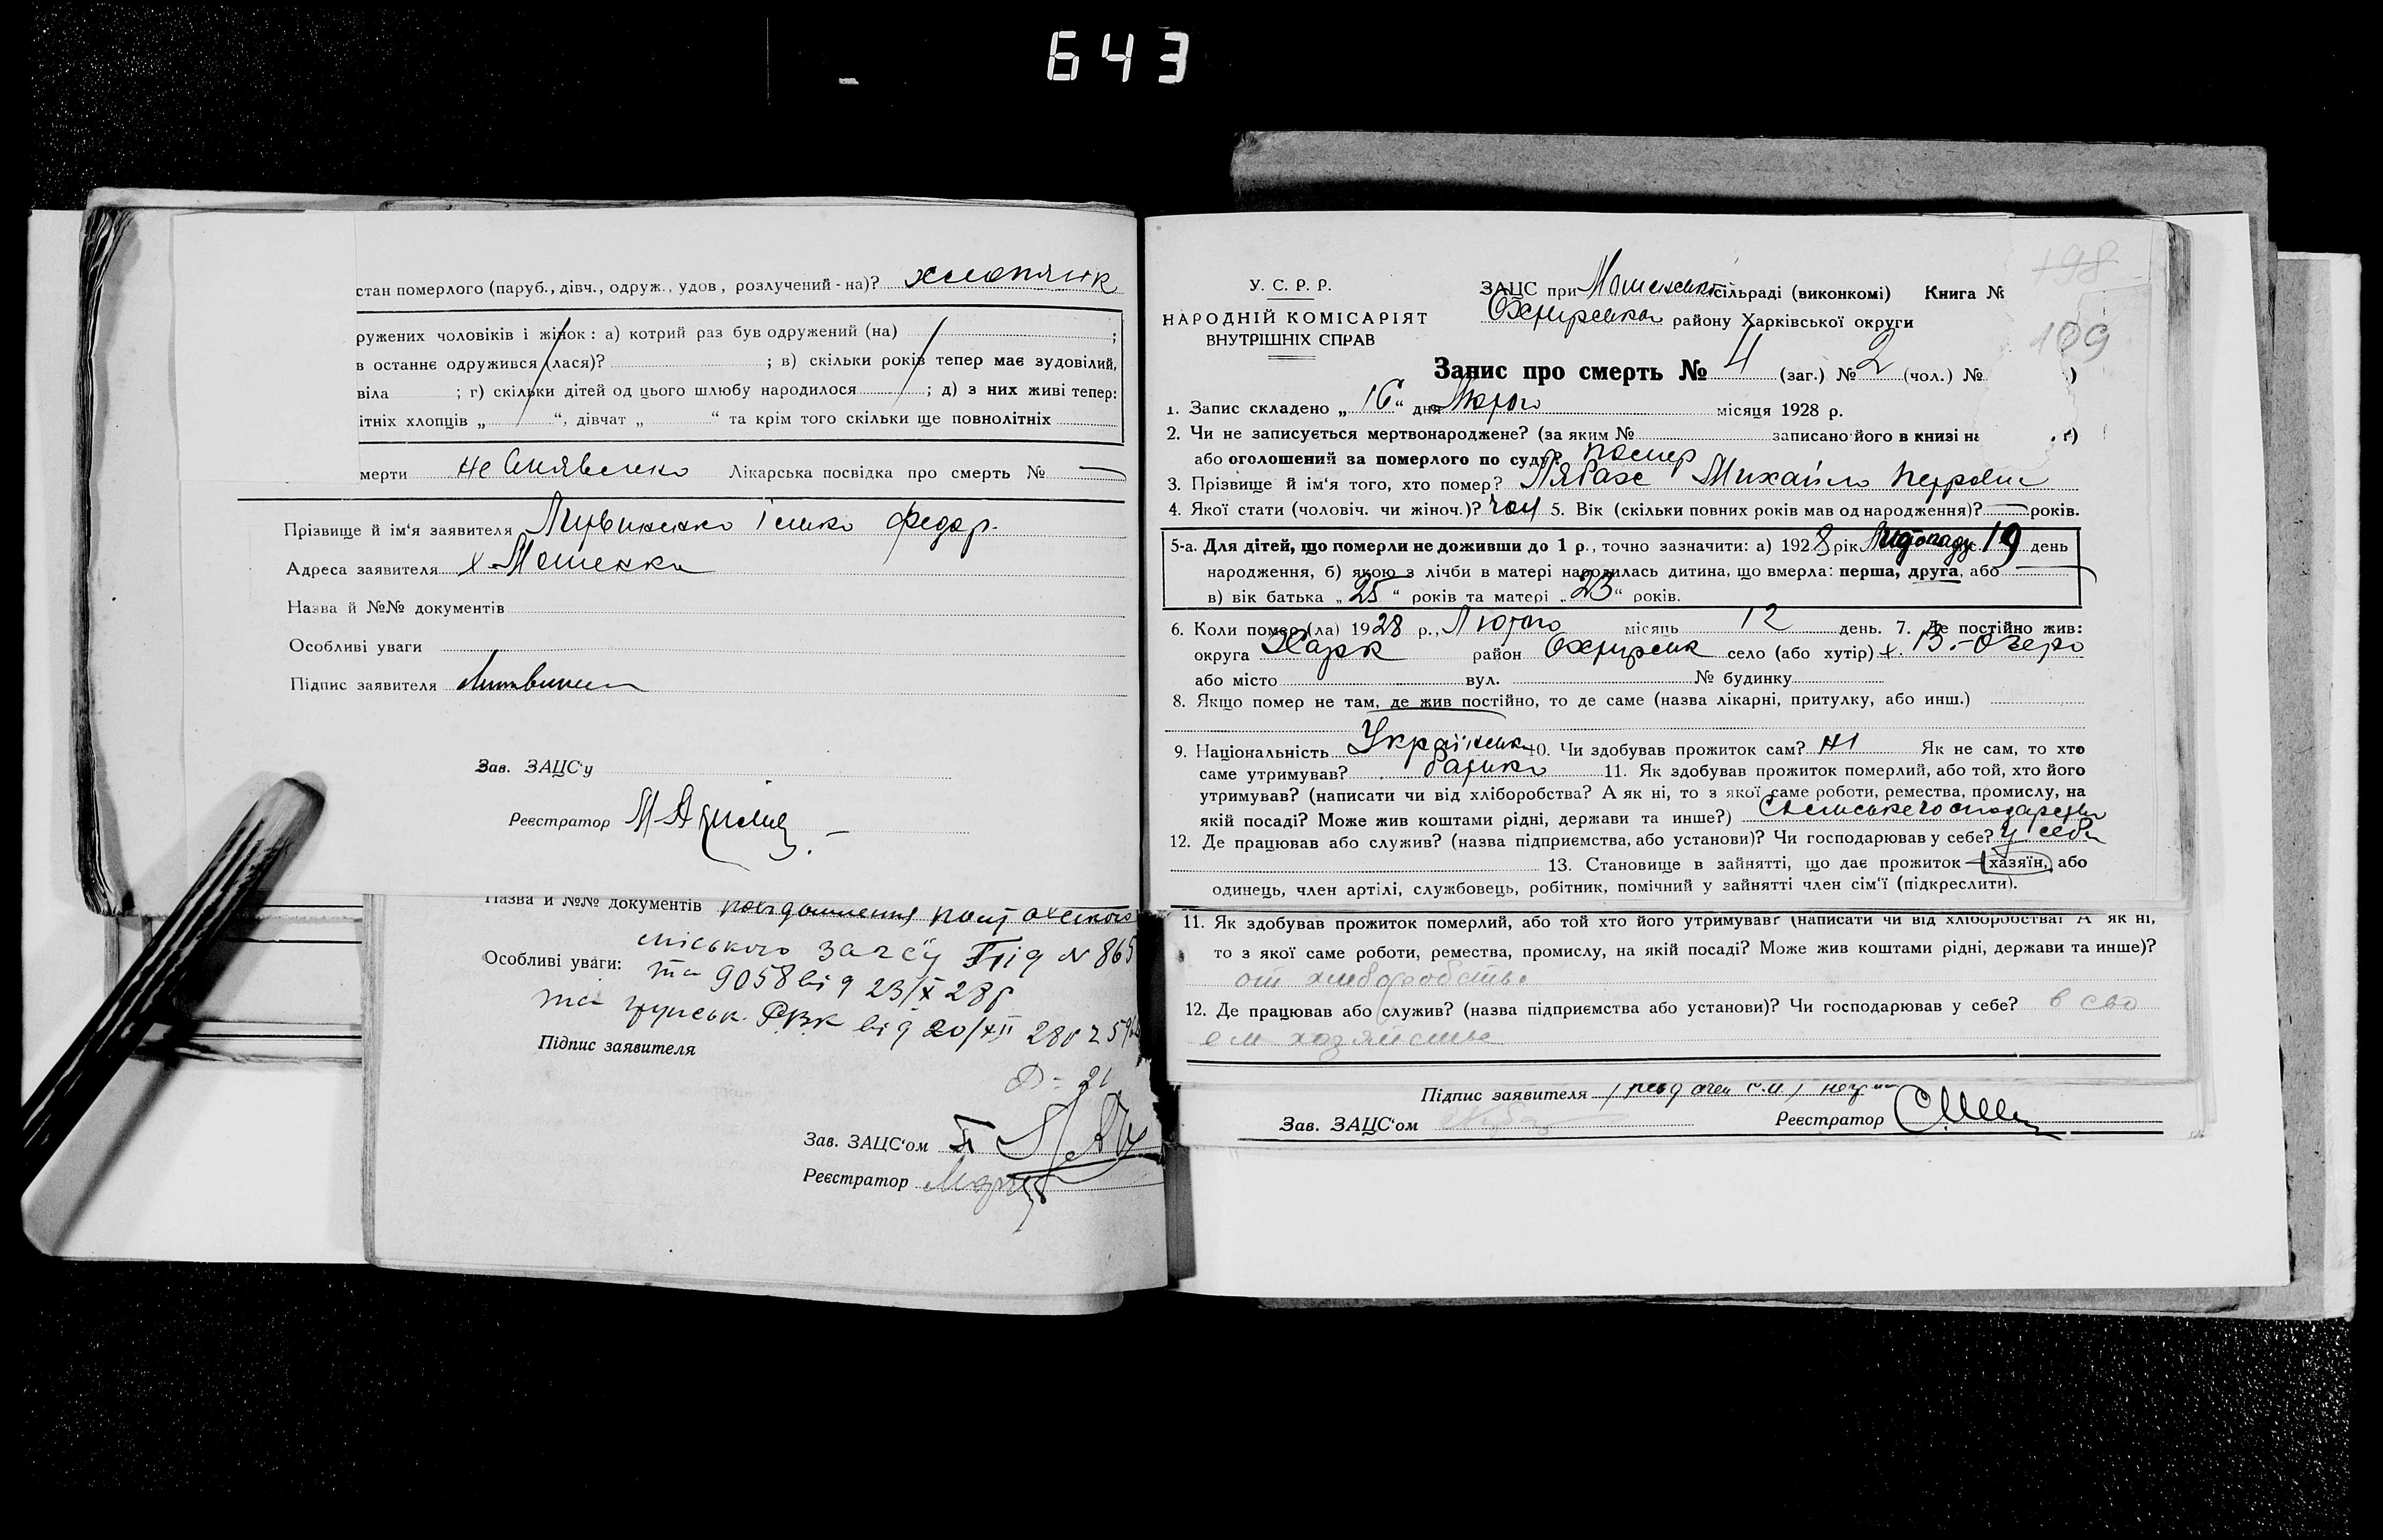 643
стан померлого (паруб., дівч., одруж., удов, розлучений-на)? хлопчик
ружених чоловіків і жінок: а) котрий раз був одружений (на) ;
в останнє одружився (лася)? ; в) скільки років тепер має зудовілий,
віла ; г) скільки дітей од цього шлюбу народилося ; д) з них живі тепер:
ітніх хлопців „ “, дівчат „ “ та крім того скільки ще повнолітніх
мерти не Лікарська посвідка про смерть № —
Прізвище й ім‘я заявителя Федор.
Адреса заявителя х.
Назва й №№ документів
Особливі уваги
Підпис заявителя
Зав. ЗАЦС‘у
Реєстратор
Назва й №№ документів
міського загсу під № 865
Особливі уваги: та 9058 від 23/X 28р
та РВК від 20/XII 28р
Підпис заявителя
Зав. ЗАЦС‘ом
Реєстратор
198
109
У. С. Р. Р.
НАРОДНІЙ КОМІСАРІЯТ
ВНУТРІШНІХ СПРАВ
ЗАЦС при сільраді (виконкомі) Книга №
району Харківської округи
Запис про смерть № 4 (заг.) № 2 (чол.) № )
1. Запис складено „ 16 “ дня Лютого місяця 1928 р.
2. Чи не записується мертвонароджене? (за яким № записано його в книзі на . г)
або оголошений за померлого по суду? помер
3. Прізвище й ім‘я того, хто помер? Михайло Петрович
4. Якої стати (чоловіч. чи жіноч.)? чол 5. Вік (скільки повних років мав од народження)? — років.
5-а. Для дітей, що померли не доживши до 1 р., точно зазначити: а) 1928 рік 19 день
народження, б) якою з лічби в матері народилась дитина, що вмерла: перша, друга, або
в) вік батька „ 25 “ років та матері „ 23 “ років.
6. Коли помер (ла) 1928 р., Лютого місяць 12 день. 7. Де постійно жив:
округа Харк район село (або хутір) х.
або місто вул. № будинку
8. Якщо помер не там, де жив постійно, то де саме (назва лікарні, притулку, або инш.)
9. Національність 10. Чи здобував прожиток сам? ні Як не сам, то хто
саме утримував? батько 11. Як здобував прожиток померлий, або той, хто його
утримував? (написати чи від хліборобства? А як ні, то з якої саме роботи, ремества, промислу, на
якій посаді? Може жив коштами рідні, держави та инше?)
12. Де працював або служив? (назва підприємства, або установи)? Чи господарював у себе? у себе
13. Становище в зайнятті, що дає прожиток — хазяїн, або
одинець, член артілі, службовець, робітник, помічний у зайнятті член сім‘ї (підкреслити).
11. Як здобував прожиток померлий, або той хто його утримував? (написати чи від хліборобства? А як ні,
то з якої саме роботи, ремества, промислу, на якій посаді? Може жив коштами рідні, держави та инше)?
от хлеборобства
12. Де працював або служив? (назва підприємства або установи)? Чи господарював у себе? в сво
ем хозяйстве
Підпис заявителя
Зав. ЗАЦС‘ом Реєстратор